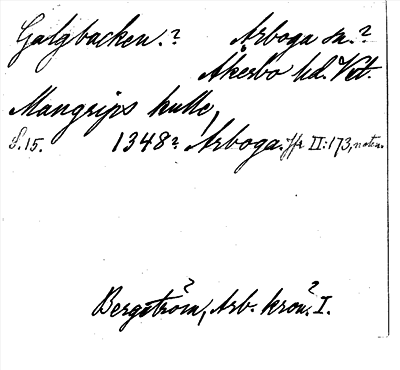 Galgbacken.? Arboga sn.?
Åkerbo hd. Vstm.
Mangrips kulle,
S. 15. 1348? Arboga. Jfr II:173, noten.
Bergström, Arb. krön. I.